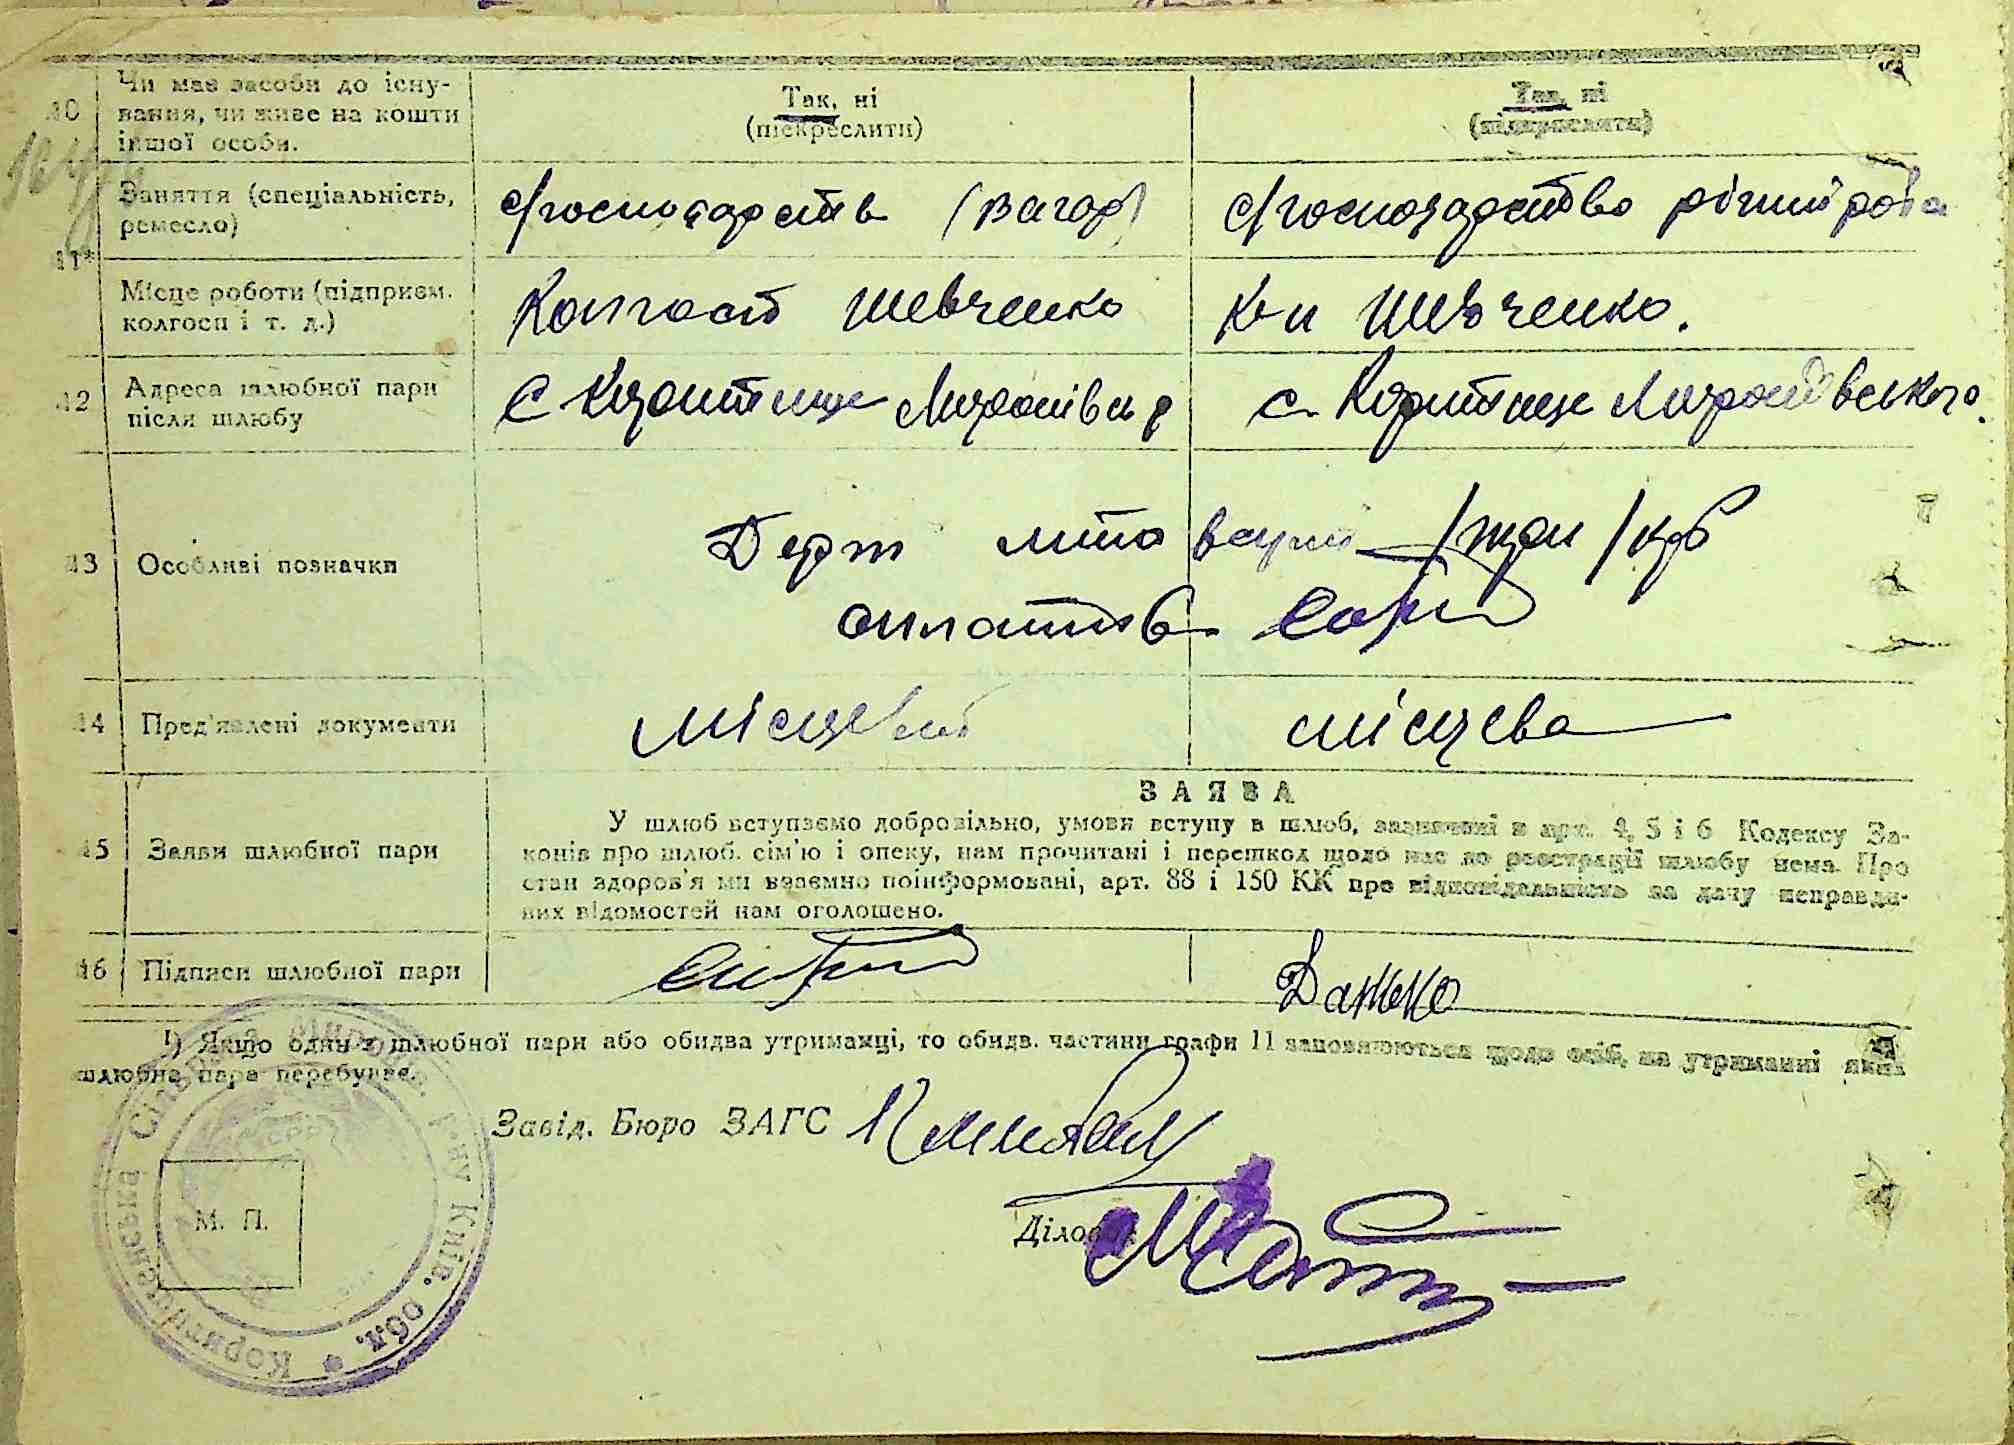 10
Чи має засоби до існу-
вання, чи живе на кошти
іншої особи.
Так, ні
(підкреслити)
Так, ні
(підкреслити)
11*
Заняття (спеціальність,
ремесло)
С/господарств
С/господарство різний роб
Місце роботи (підприєм.
колгосп і т. д.)
Колгосп Шевченко
К-п Шевченко.
12
Адреса шлюбної пари
після шлюбу
с Коритище Миронівськ р
с. Коритище Миронівського.
13
Особливі позначки
Держ мито /три/ крб
оплатив
14
Пред'явлені документи
місцевий
місцева
15
Заяви шлюбної пари
ЗАЯВА
У шлюб вступаємо добровільно, умови вступу в шлюб, зазначені в арт. 4, 5 і 6 Кодексу За-
конів про шлюб. сім'ю і опеку, нам прочитані і перешкод щодо нас до реєстрації шлюбу нема. Про
стан здоров'я ми взаємно поінформовані, арт. 88 і 150 КК про відповідальність за дачу неправди-
вих відомостей нам оголошено.
16
Підписи шлюбної пари
Данько
1) Якщо один з шлюбної пари або обидва утриманці, то обидв. частини графи 11 заповнюються щодо осіб, на утриманні яких
шлюбна пара перебуває.
Завід. Бюро ЗАГС
М. П.
Діловод
р-ну Київ. обл.